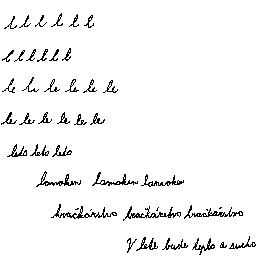 l l l l l l
l l l l l l
le le le le le le
le le le le le le
leto leto leto
lomoken lomoken lomoken
hračkárstvo hračkárstvo hračkárstvo
V lete bude teplo a sucho